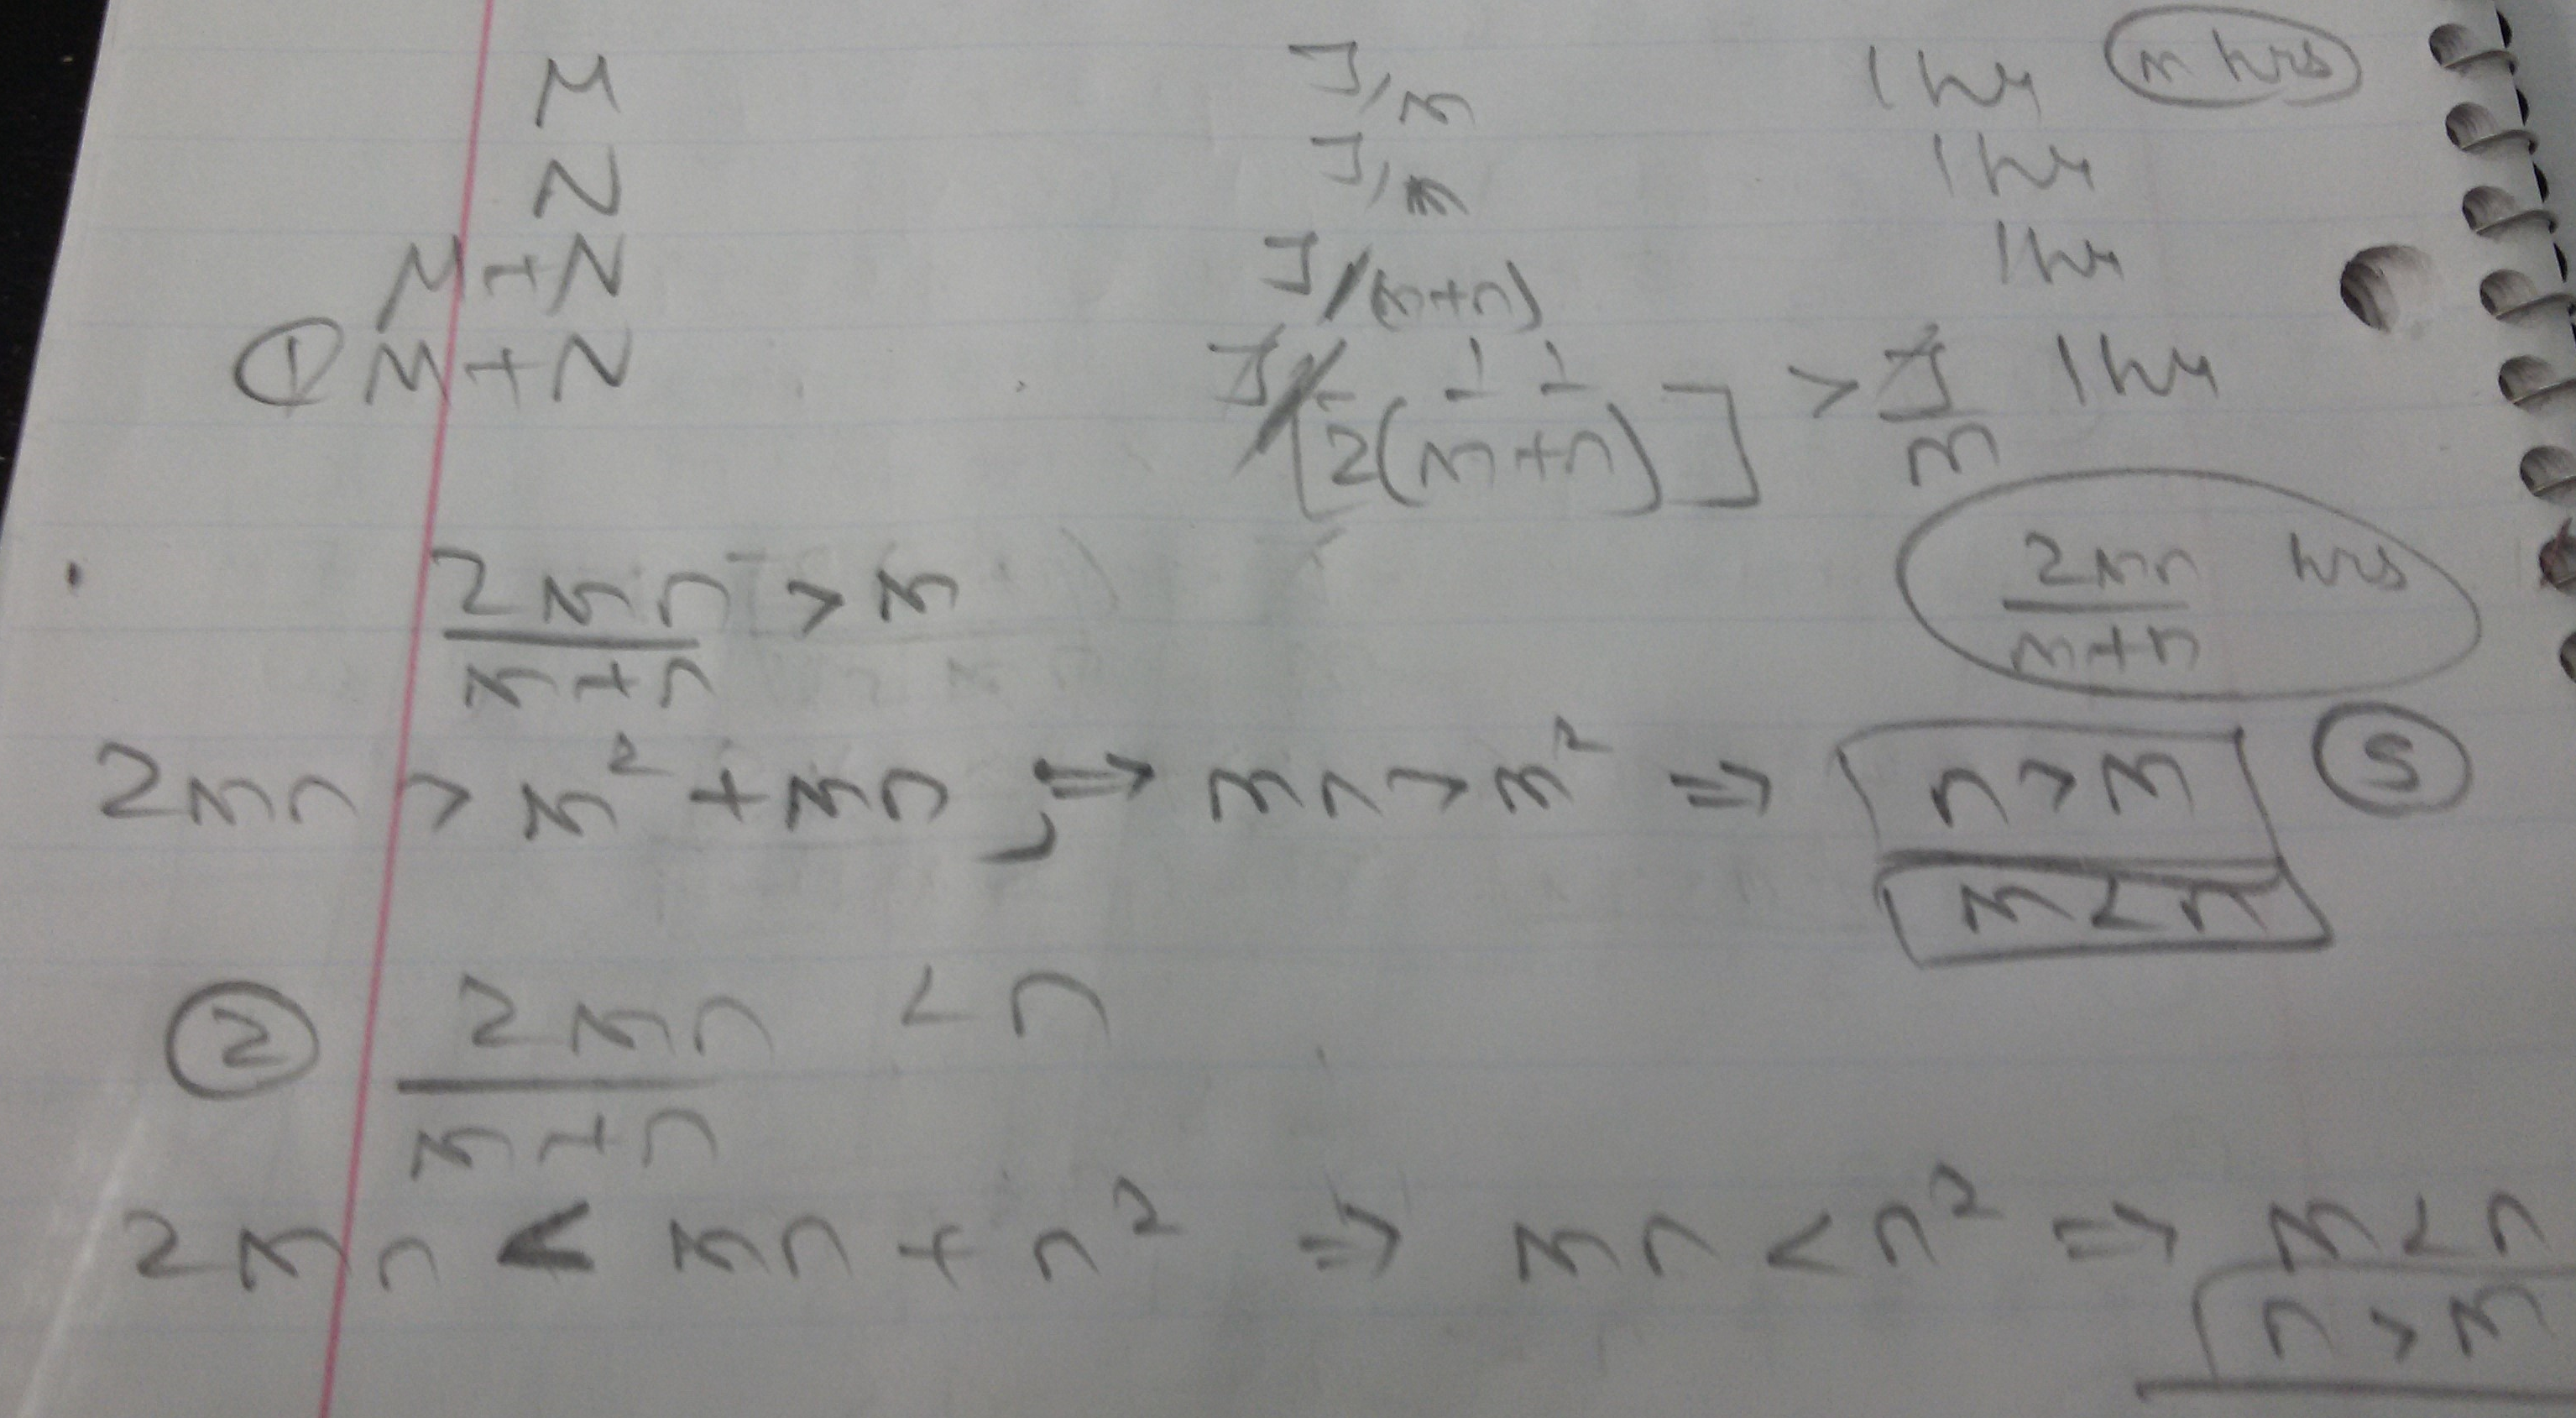 M J/m 1 hr m hrs
N J/n 1 hr
M+N J/(m+n) 1 hr
① M+N J/[1/2(1/m+1/n)] > J/m 1 hr
2mn/m+n > m 2mn/m+n hrs
2mn > m²+mn, ⇒ mn>m² ⇒ n>m ⑤
m<n
② 2mn/m+n < n
2mn < mn + n² ⇒ mn < n² ⇒ m<n
n>m